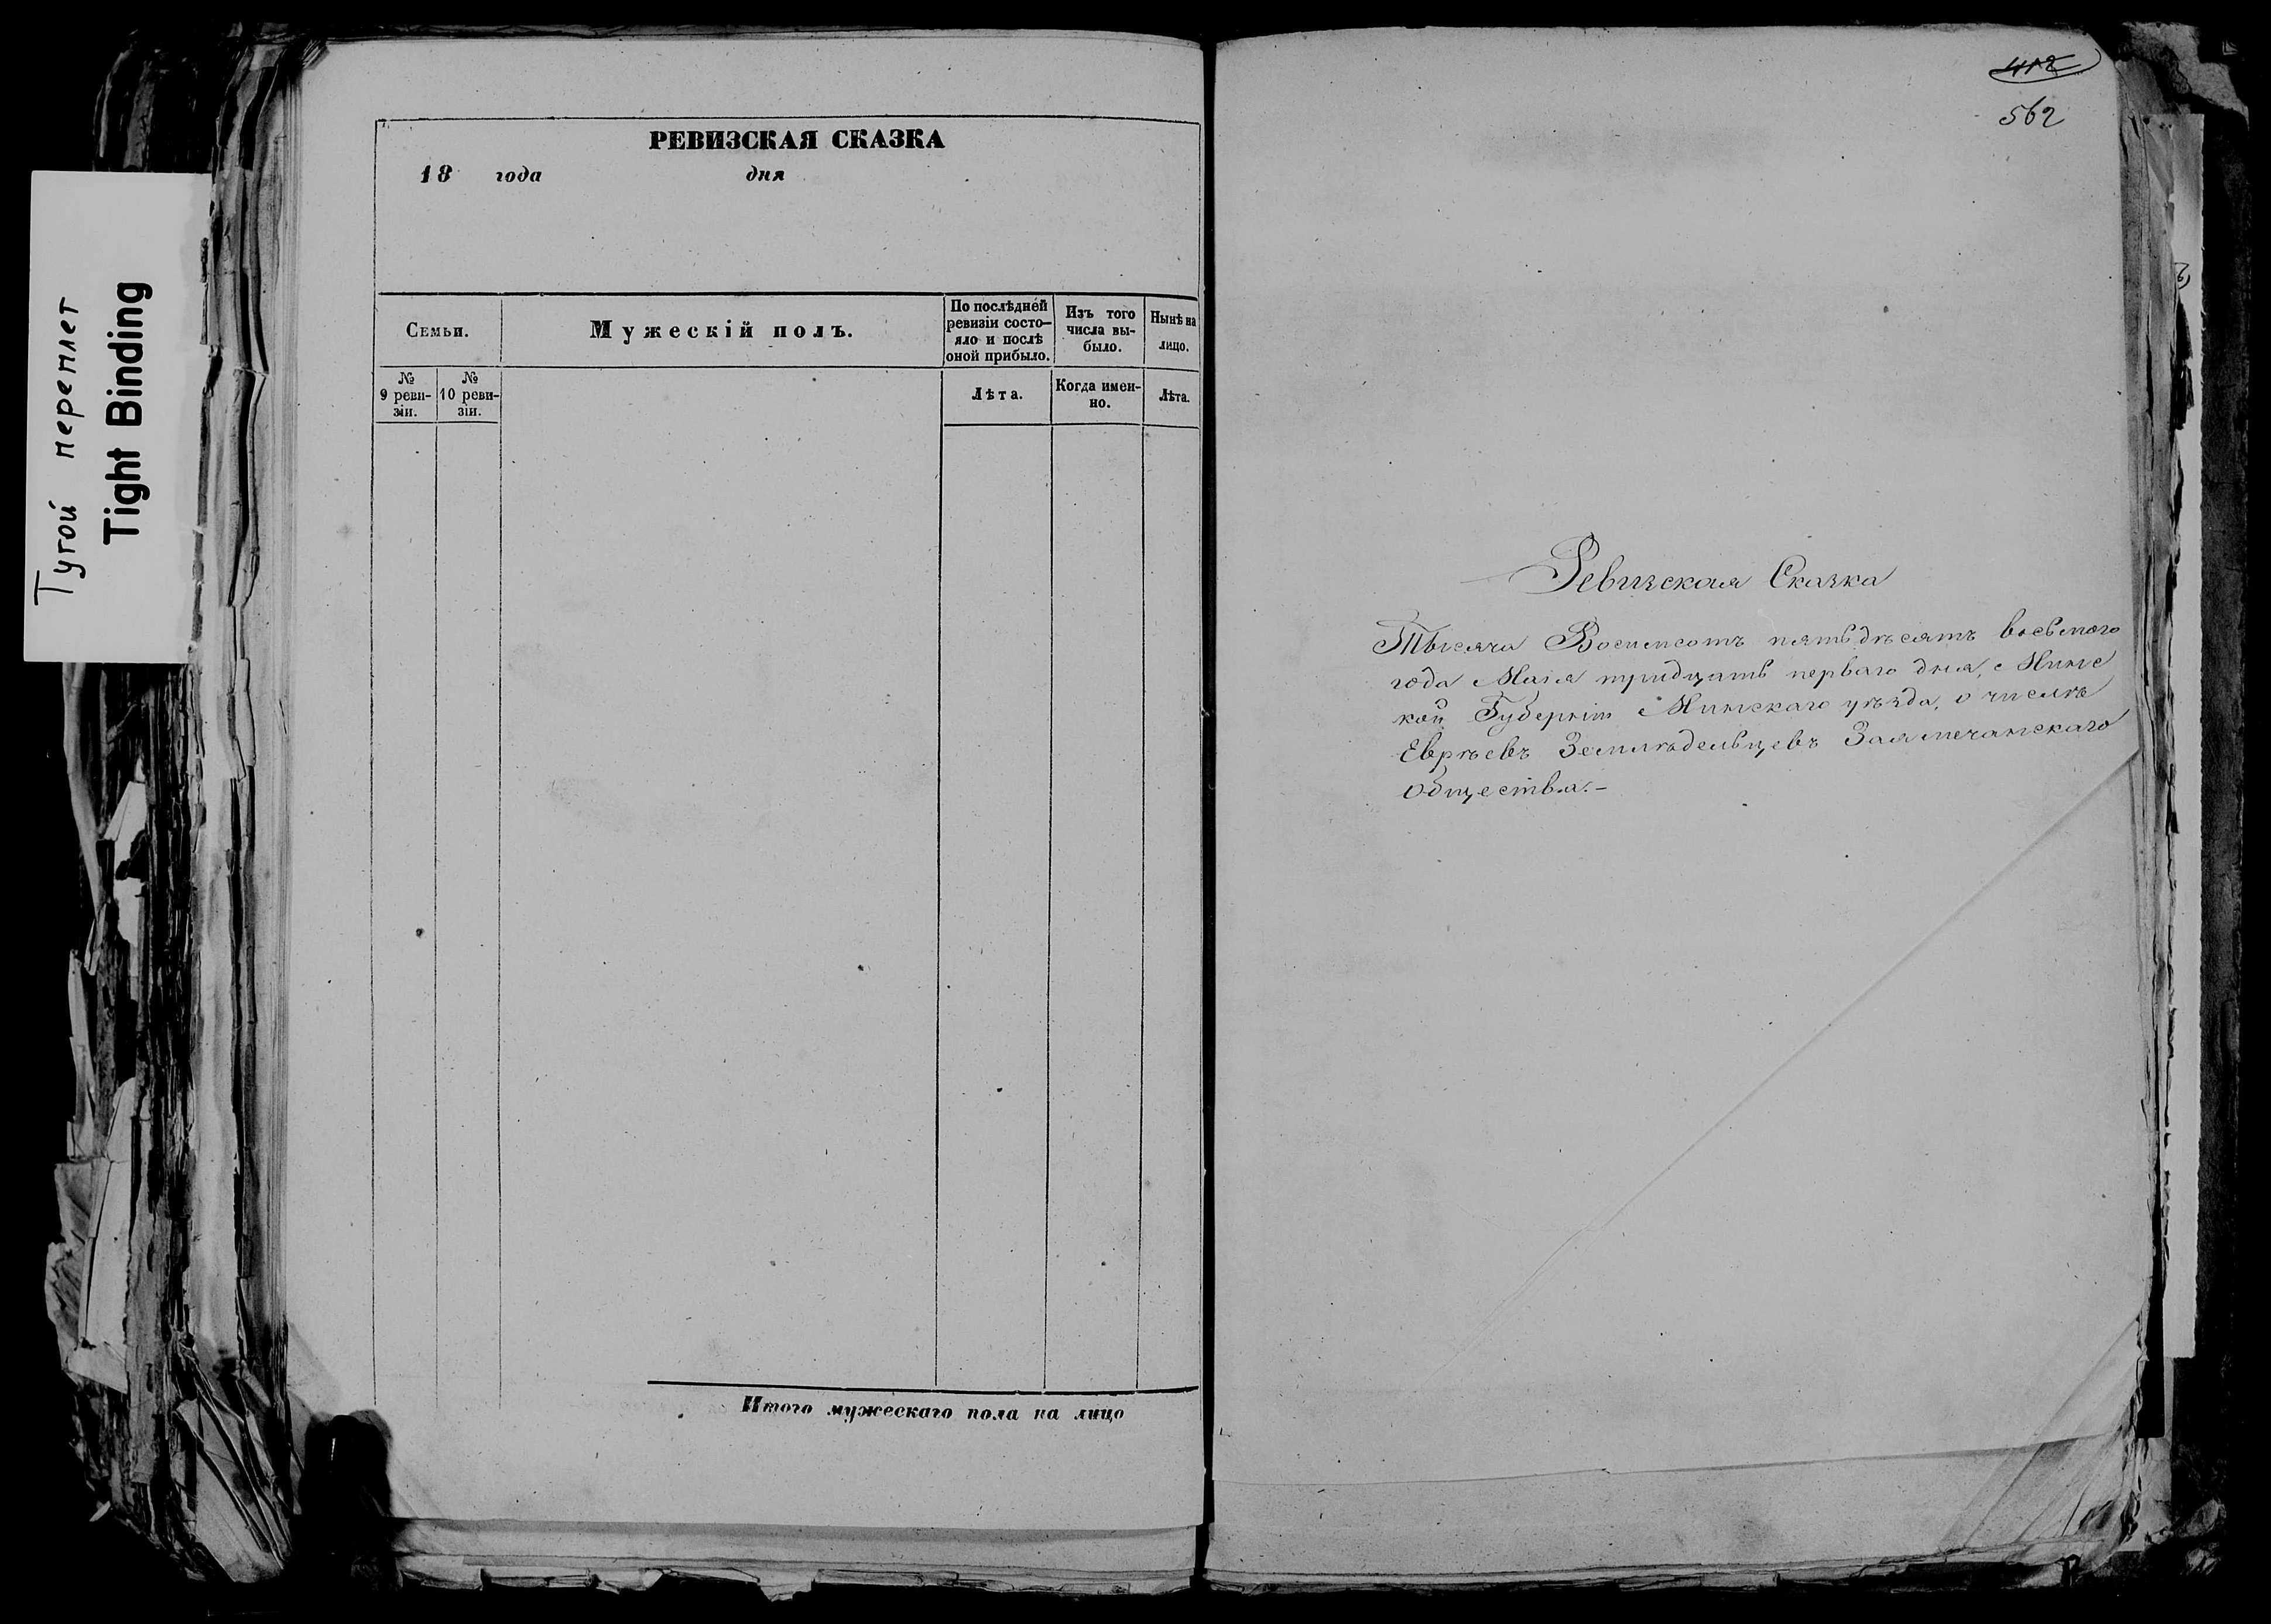 Тугой переплет
Tight Binding
РЕВИЗСКАЯ СКАЗКА
18 года дня
Семьи.
Мужескій полъ.
По послѣдней
ревизіи состо-
яло и послѣ
оной прибыло.
Изъ того
числа вы-
было.
Нынѣ на
лицо.
№
9 реви-
зіи.
№
10 реви-
зіи.
Лѣта.
Когда имен-
но.
Лѣта.
Итого мужескаго пола на лицо
412
562
Ревизская Сказка
Тысяча Восемсотъ пятьдѣсятъ восьмого
года Маія тридцать перваго дня, Минс
кой Губерніи Минскаго уѣзда, о числѣ
Еврѣевъ Землѣдельцевъ Заямечанскаго
Общества.-